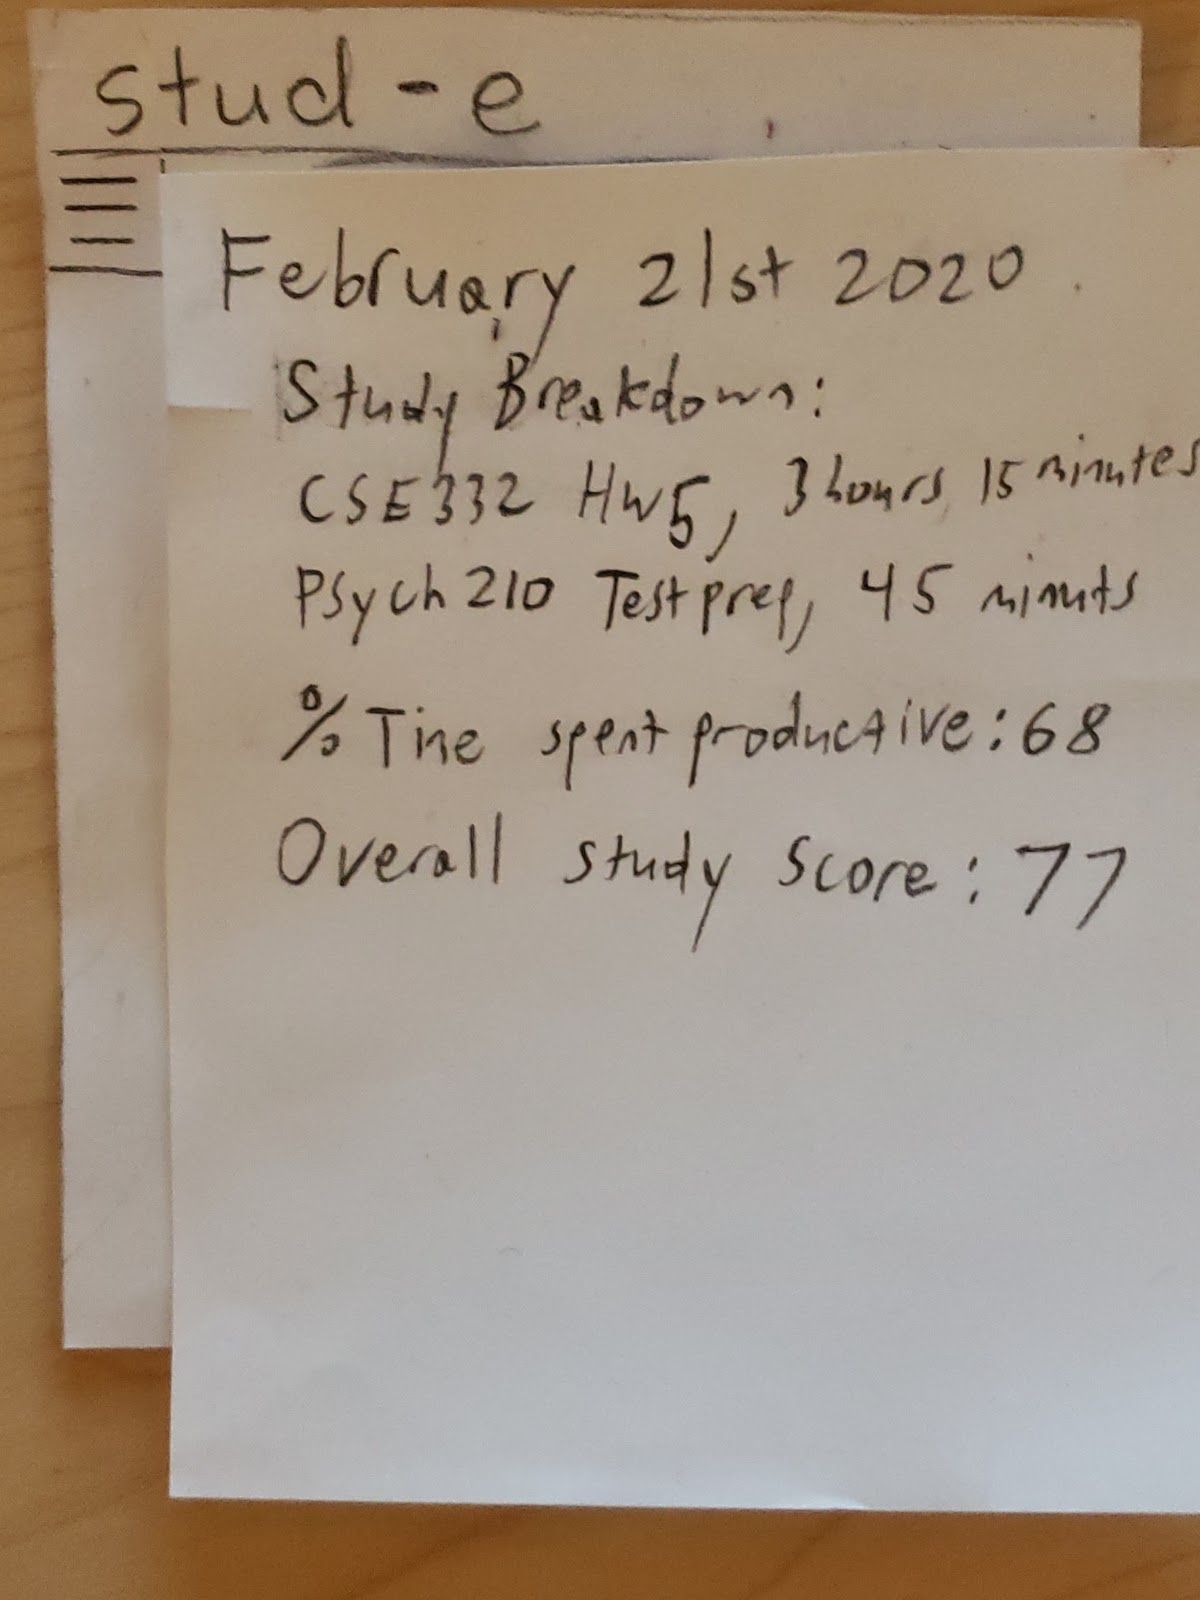 stud-e
February 21st 2020
Study Breakdown:
CSE332 HW5, 3 hours, 15 minutes
Psych 210 Test prep, 45 minuts
% Time spent productive: 68
Overall study score: 77